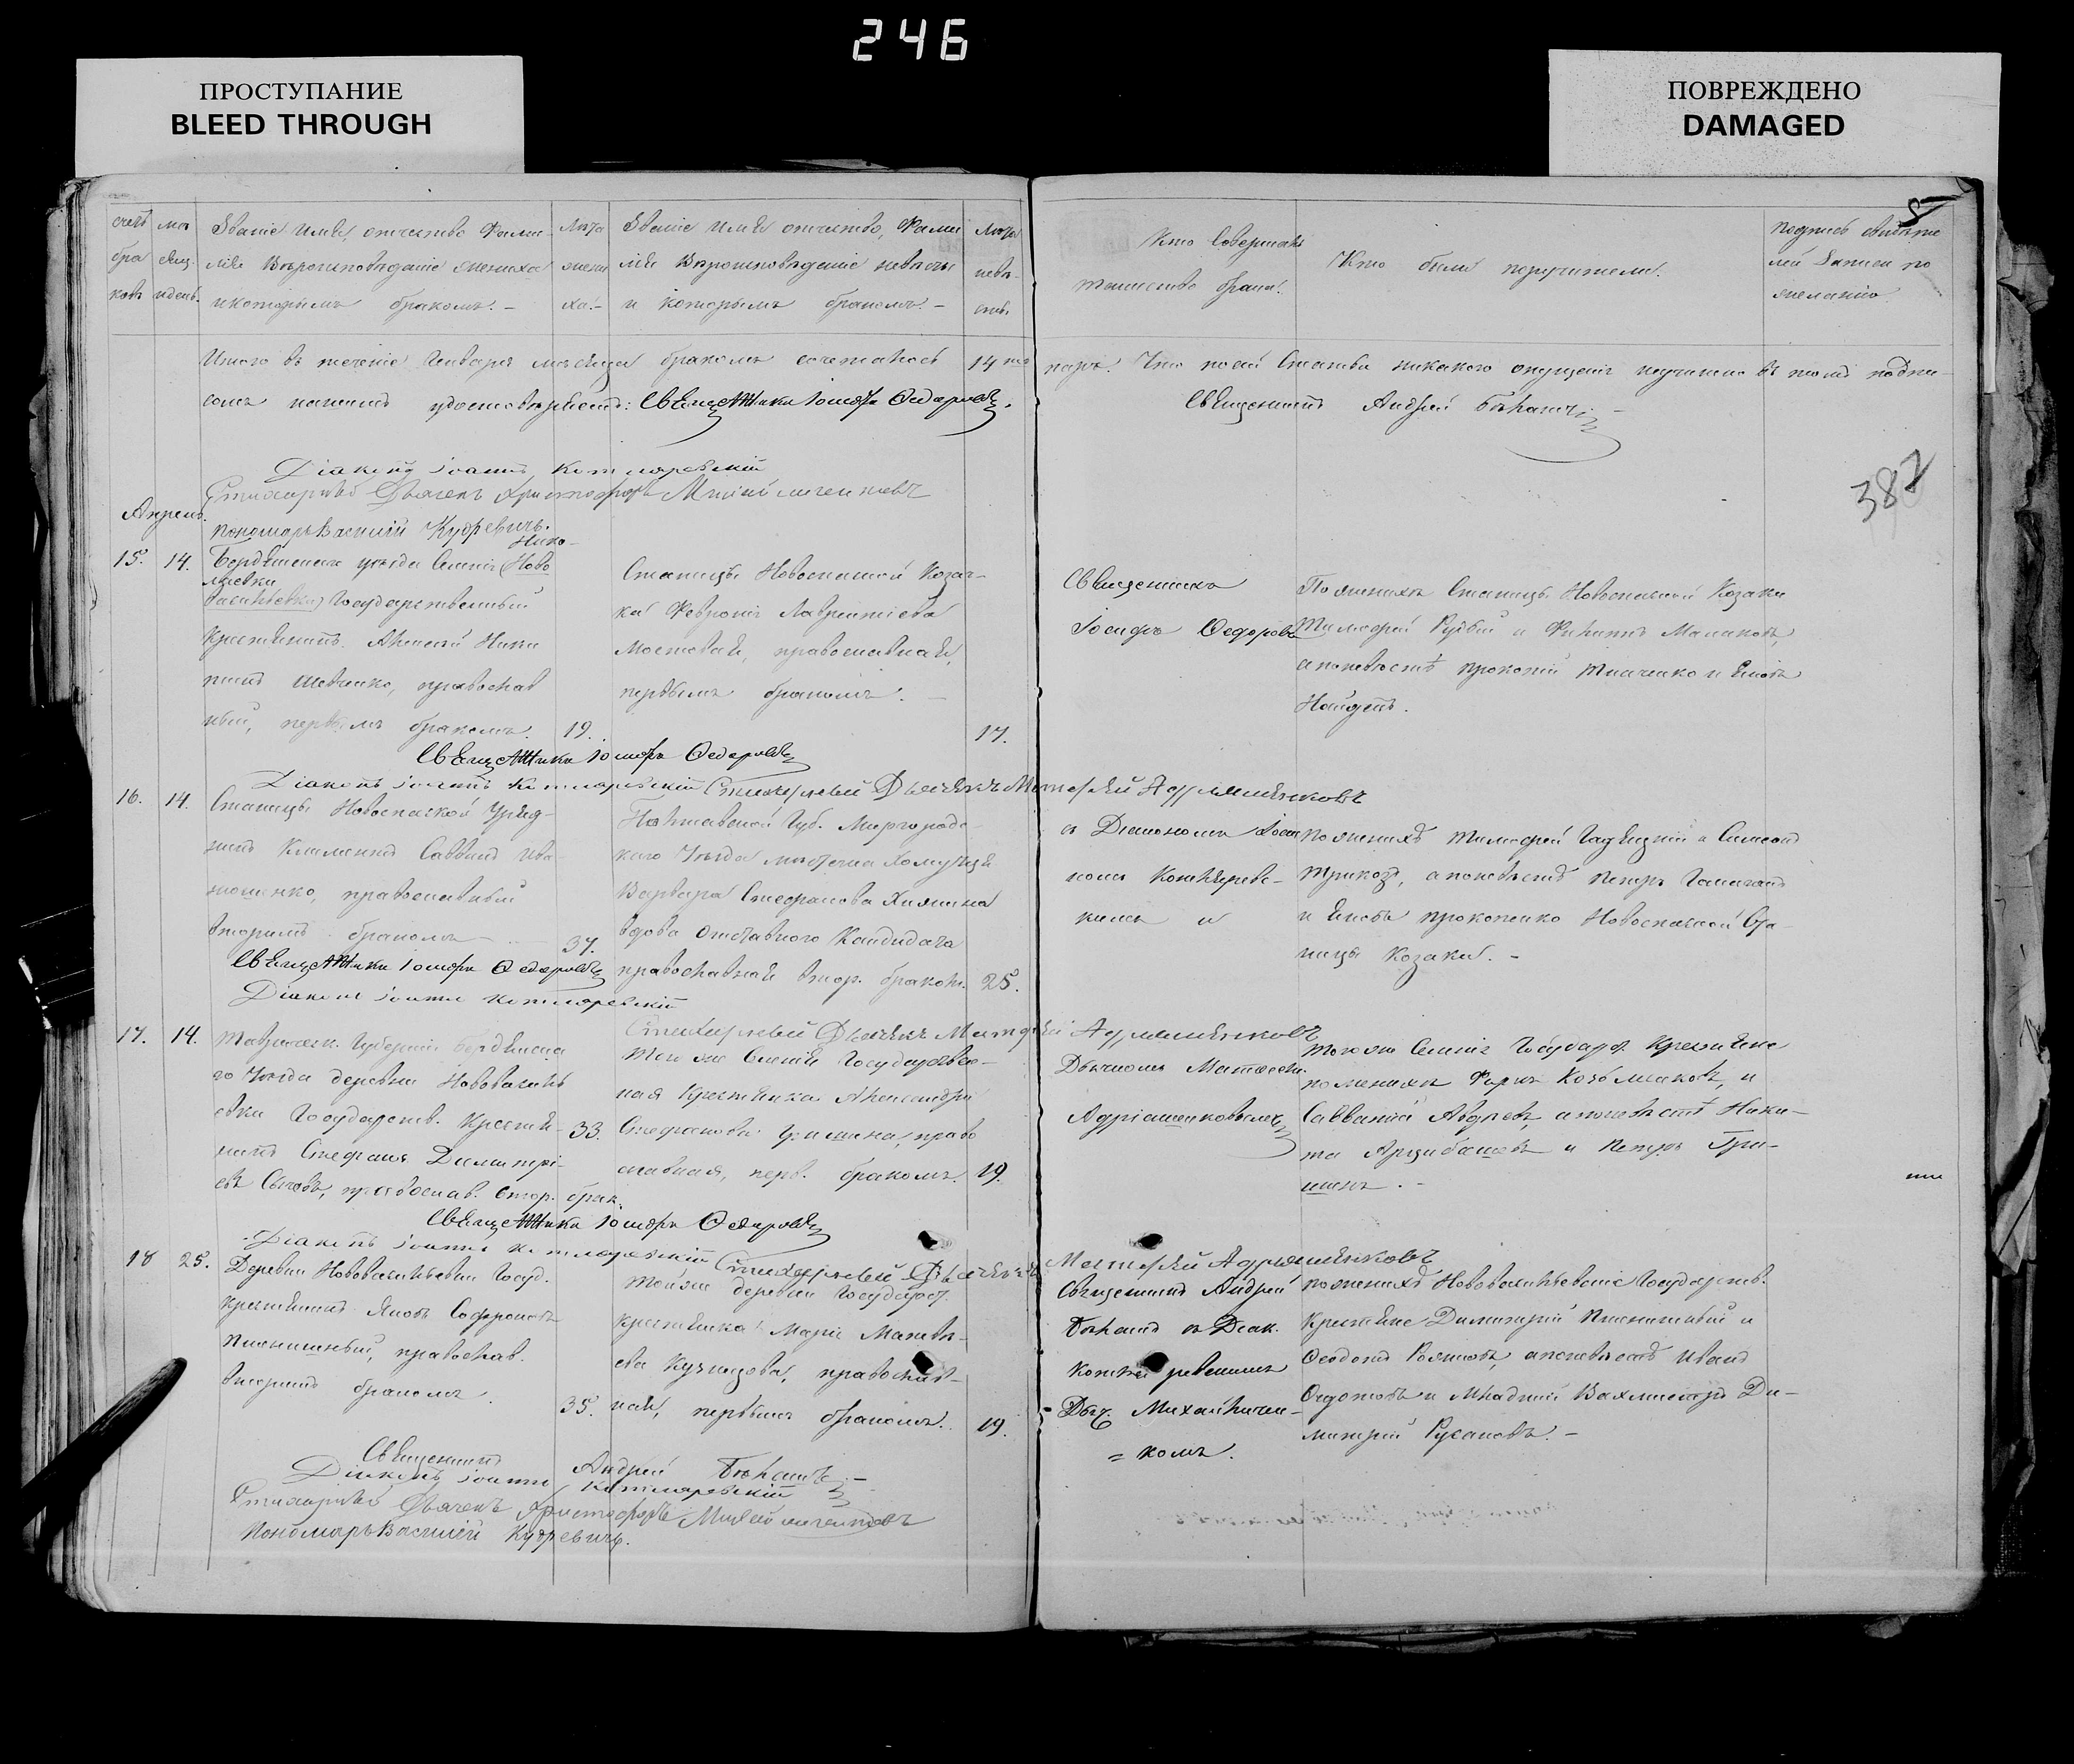 246
ПРОСТУПАНИЕ
BLEED THROUGH
ПОВРЕЖДЕНО
DAMAGED
счетъ
бра
ковъ
мѣ
сяц.
и день.
Званіе имя, отчество Фами-
лія Вѣроисповѣданіе жениха
и которымъ бракомъ. –
Лѣта
жени
ха. –
Званіе имя отчество, Фами
лія Вѣроисповѣданіе невѣсты
и которымъ бракомъ. –
Лѣта
невѣ-
сты
Кто совершалъ
таинство брака.
Кто были поручители.
подпись свидѣте
лей записи по
желанію
Итого въ теченіе Января мѣсяца бракомъ сочеталось 14ть
паръ. Что по сей Статьѣ никакого опущенія въ томъ подпи-
сомъ нашимъ удостовѣряемъ: Священникъ Іосифъ Федоровъ.
Священникъ Андрей
Діаконъ Іоаннъ Котляревскій
Стихарный Дьячекъ Христофоръ
Пономарь Василій Кудревичъ.
387
Апрель.
15. 14.
Бердянскаго уѣзда Селенія (Ново
Нико-
лаевки
Васильевки) Государственный
Крестьянинъ Алексѣй Ники
тинъ Шевченко, православ
ный, первымъ бракомъ. 19.
Станицы Новоспасской Козач-
ка Февронія Лаврентіева
Мостовая, православная,
первымъ бракомъ. –
17.
Священникъ
Іосифъ Федоровъ
По женихѣ Станицы Новоспасской Козаки
Тимофей Рубый и Филипъ Малаховъ,
а по невѣстѣ Прокопій Ткаченко и Яковъ
Найденъ.
Священникъ Іосифъ Федоровъ
Діаконъ Іоаннъ Котляревскій Стихарный Дьячекъ Матфей Адріяшенковъ
16. 14.
Станицы Новоспасской Уряд-
никъ Климентъ Саввинъ Ива-
ношенко, православный
вторымъ бракомъ – 37.
Полтавской Губ. Миргородс-
каго Уѣзда мѣстечка Хомутца
Варвара Стефанова
вдова Отставного Кандидата
православная втор. браком. 25.
съ Діакономъ Іоан
номъ Котляревс-
кимъ и
по женихѣ Тимофей Гадяцкій и Симеонъ
Трикозъ, а по невѣстѣ Петръ Галаганъ
и Яковъ Прокопенко Новоспасской Ста-
ницы Козаки. –
Священникъ Іосифъ Федоровъ
Діаконъ Іоаннъ Котляревскій
Стихарный Дьячекъ Матфей Адріяшенковъ
17. 14.
Таврическ. Губерніи Бердянска
го Уѣзда деревни Нововасиль
евки Государств. Крестья-
нинъ Стефанъ Димитрі-
евъ Сычовъ, православ. втор. брак.
33.
того же Селенія Государствен-
ная Крестьянка Александра
Стефанова Гришина, право
славная, перв. бракомъ. 19.
Дьячкомъ Матѳеемъ
Адріашенковымъ
того же Селенія Государ. Крестьяне
по женихѣ Фирсъ Козьмаковъ, и
Савватій Авдѣевъ, а по невѣстѣ Ники-
та Арцибашевъ и Петръ Гри-
шинъ. –
Священникъ Іосифъ Федоровъ
Діаконъ Іоаннъ Котляревскій Стихарный Дьячекъ Матфей Адріяшенковъ
18 25.
Деревни Нововасильевки Госуд.
крестьянинъ Яковъ Софроновъ
Пшенишный, православ.
вторымъ бракомъ.
35.
той же деревни Государст.
крестьянка Марія Матвѣ-
ева Кузнецова, православ-
ная, первымъ бракомъ. 19.
Священникъ Андрей
съ Діак.
Котляревскимъ
Дьяч. Михайличен-
= комъ.
по женихѣ Нововасильевскіе Государств.
Крестьяне Димитрій Пшенишный и
Ѳеодотъ, а по невѣстѣ Иванъ
Ѳедотовъ и Младшій Вахмистръ Ди-
митрій Русановъ. –
Священникъ Андрей
Діаконъ Іоаннъ Котляревскій
Стихарный Дьячекъ Христофоръ
Пономарь Василій Кудревичъ.